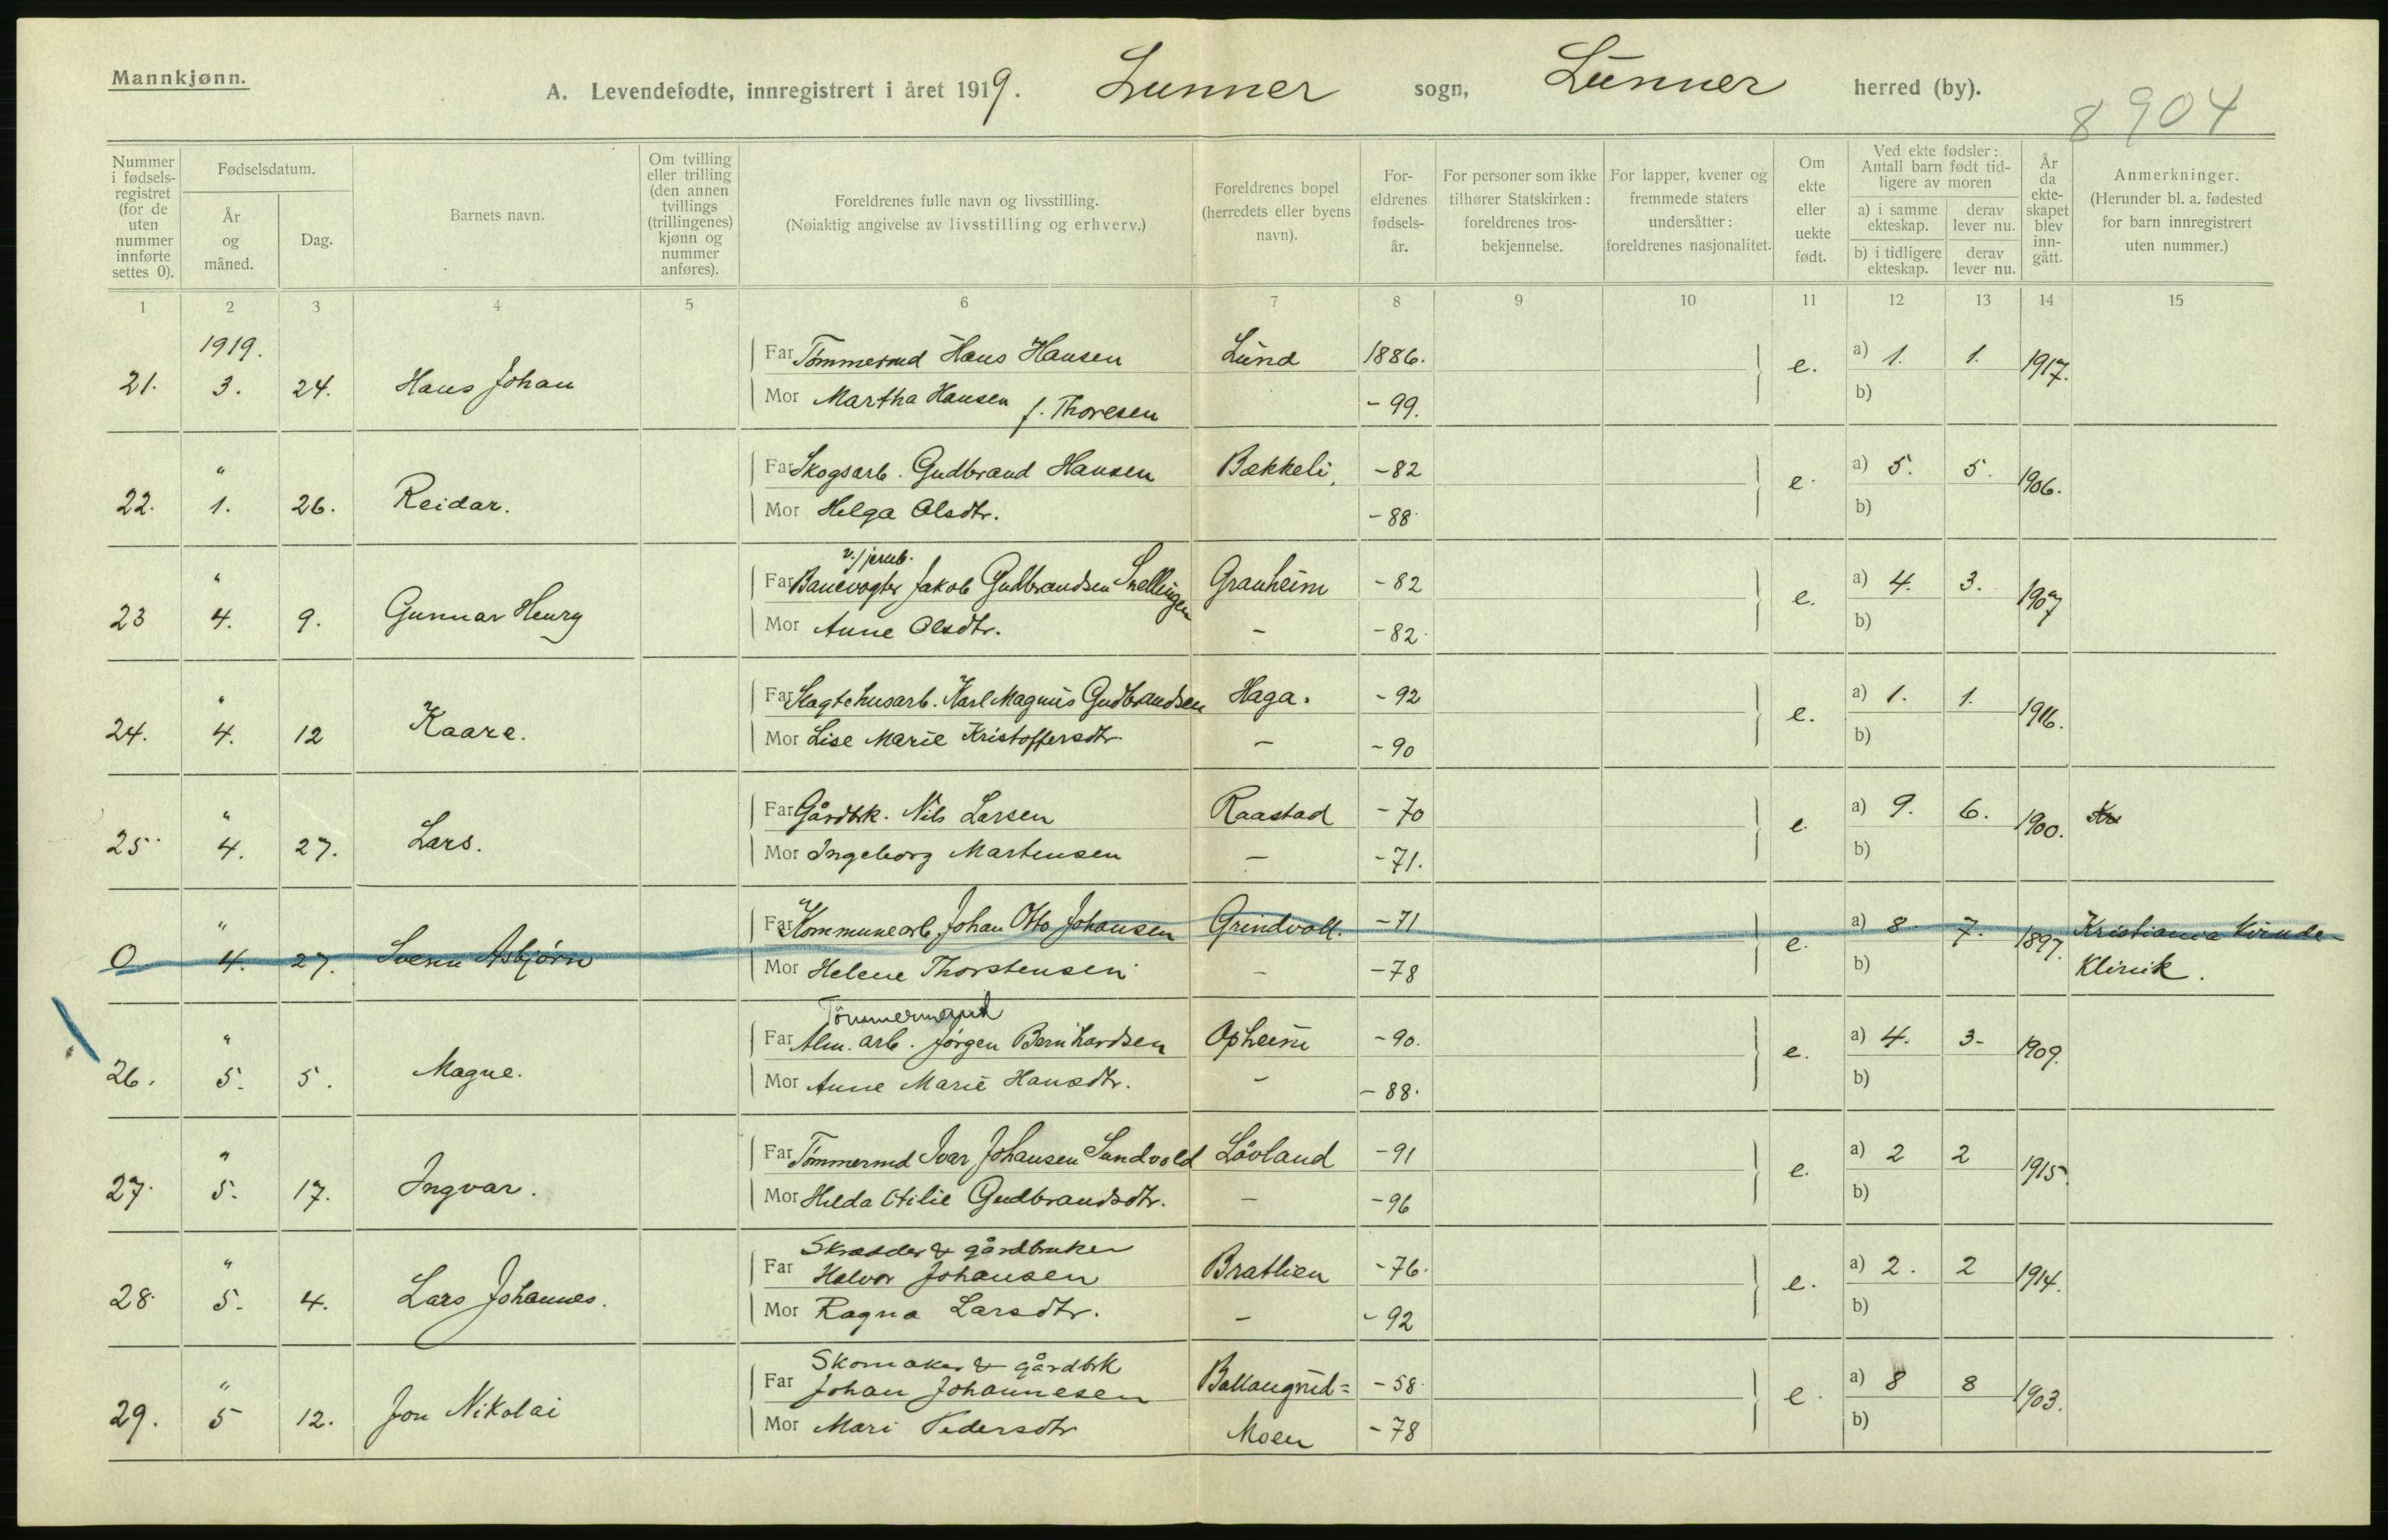 Mannkjønn.
A. Levendefødte, innregistrert i året 1919. Lunner sogn, Lunner herred (by).
8904
Nummer i fødsels-registret (for de uten nummer innførte settes 0).
Fødselsdatum.
År og måned.
Dag.
Barnets navn.
Om tvilling eller trilling (den annen tvillings (trillingenes) kjønn og nummer anføres).
Foreldrenes fulle navn og livsstilling.
(Nøiaktig angivelse av livsstilling og erhverv.)
Foreldrenes bopel (herredets eller byens navn).
For-eldrenes fødsels-år.
For personer som ikke tilhører Statskirken: foreldrenes tros-bekjennelse.
For lapper, kvener og fremmede staters undersåtter: foreldrenes nasjonalitet.
Om ekte eller uekte født.
Ved ekte fødsler: Antall barn født tid-ligere av moren
a) i samme ekteskap.
derav lever nu.
b) i tidligere ekteskap.
derav lever nu.
År da ekte-skapet blev inn-gått.
Anmerkninger.
(Herunder bl. a. fødested for barn innregistrert uten nummer.)
1 2 3 4 5 6 7 8 9 10 11 12 13 14 15
1919.
Far Tømmermd Hans Hansen Lund 1886. a) 1. 1.
21. 3. 24. Hans Johan e. 1917.
Mor Martha Hansen f. Thoresen - 99. b)
" Far Skogsarb. Gudbrand Hansen Bækkeli, - 82 a) 5. 5.
22. 1. 26. Reidar. e. 1906.
Mor Helga Olsdtr. - 88. b)
v./jernb.
" Far Banevogter Jakob Gudbrandsen Snellingen Granheim - 82 a) 4. 3.
23 4. 9. Gunnar Henry e. 1907
Mor Anne Olsdtr. - - 82. b)
" Far Slagtehusarb. Karl Magnus Gudbrandsen Haga. - 92 a) 1. 1.
24. 4. 12 Kaare. e. 1916.
Mor Lise Marie Kristoffersdtr. - - 90 b)
" Far Gårdbk. Nils Larsen Raastad - 70 a) 9. 6.
25. 4. 27. Lars. e. 1900.
Mor Ingeborg Martensen - - 71. b)
" Far Kommunearb. Johan Otto Johansen Grindvoll. - 71 a) 8. 7. Kristiania Kvinde-
0 4. 27. Svenn Asbjørn e. 1897.
Mor Helene Thorstensen - - 78 b) Klinik.
Tömmermand
" Far Alm. arb. Jørgen Bernhardsen Opheim - 90. a) 4. 3-
26. 5. 5. Magne. e. 1909.
Mor Anne Marie Hansdtr. - - 88. b)
" Far Tømmermd Ivar Johansen Sandvold Løvland - 91 a) 2 2
27. 5. 17. Ingvar. e. 1915
Mor Hilda Otilie Gudbrandsdtr. - - 96 b)
Skrædder & gårdbruker
" Far Halvor Johansen Bratlien - 76. a) 2. 2
28. 5. 4. Lars Johannes. e. 1914.
Mor Ragna Larsdtr. - - 92 b)
Skomaker & gårdbk
" Far Johan Johannesen Ballangrud= - 58. a) 8 8
29. 5 12. Jon Nikolai e. 1903.
Mor Mari Pedersdtr Moen - 78 b)